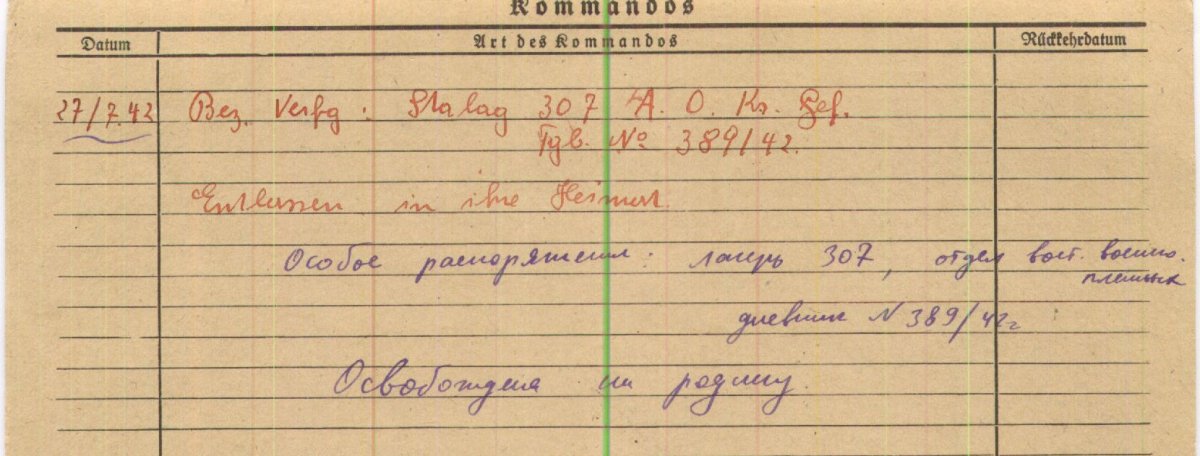 Kommandos
Datum Art des Kommandos Rückkehrdatum
27/7.42 Bez. Verfg: Stalag 307 A. O. Kr. Gef.
Tgb. No 389/42.
Entlassen in ihre Heimat
Особое распоряжение: лагерь 307, отдел вост. военно.
пленных
дневник N 389/42г
Освобождена на родину.